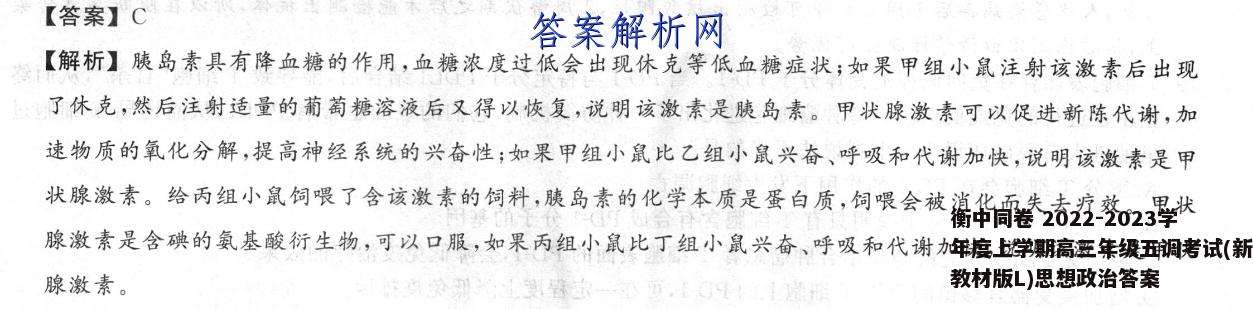 【答案】C
答案解析网
【解析】胰岛素具有降血糖的作用,血糖浓度过低会出现休克等低血糖症状;如果甲组小鼠注射该激素后出现
了休克,然后注射适量的葡萄糖溶液后又得以恢复,说明该激素是胰岛素。甲状腺激素可以促进新陈代谢,加
速物质的氧化分解,提高神经系统的兴奋性;如果甲组小鼠比乙组小鼠兴奋、呼吸和代谢加快,说明该激素是甲
状腺激素。给丙组小鼠饲喂了含该激素的饲料,胰岛素的化学本质是蛋白质,饲喂会被消化而失去疗效。甲状
腺激素是含碘的氨基酸衍生物,可以口服,如果丙组小鼠比丁组小鼠兴奋、呼吸和代谢加
腺激素。
衡中同卷 2022-2023学
年度上学期高三年级五调考试(新
教材版L)思想政治答案